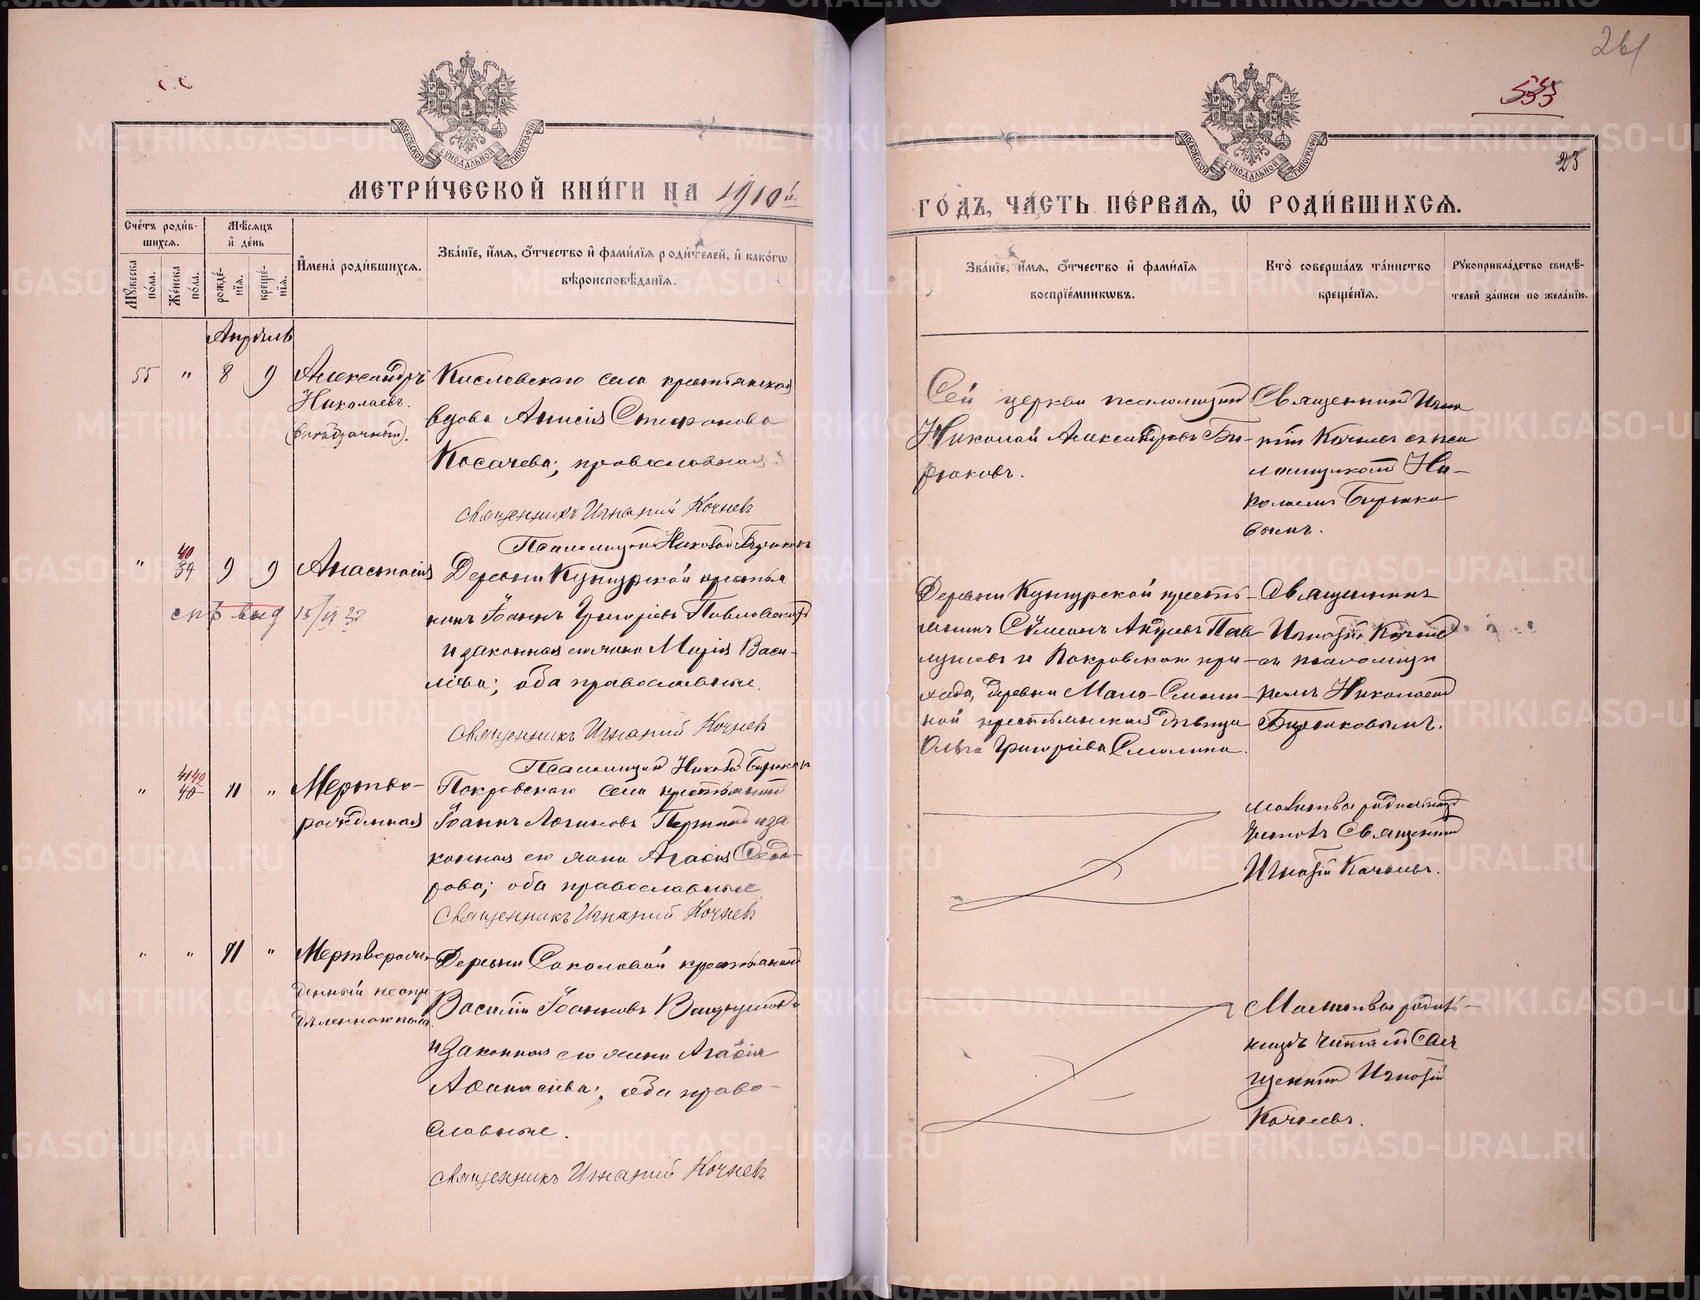 261
555
23
МОСКОВСКОЙ СѴНОДАЛЬНОЙ ТИПОГРАФІИ
МЕТРИ́ЧЕСКОЙ КНИ́ГИ НА 1910й
Сче́тъ роди́в-
шихся.
Мѣ́сяцъ
и҆ де́нь
Му́жеска по́ла.
Же́нска по́ла.
рожде́-
нїя.
креще́-
нїя.
И҆мена̀ роди́вшихся.
Зва́нїе, и҆́мя, ѻ҆́тчество и҆ фами́лїя роди́телей, и҆ како́гѡ
вѣроисповѣ́данїя.
Апрѣль
55 " 8 9
Александръ
Николаевъ.
(внѣбрачный).
Кисловскаго села крестьянская
вдова Анисія Стефанова
Косачева; православная.
Священникъ Игнатій Кочневъ
Псаломщикъ Николай Бирюковъ
" 40
39 9 9
Анастасія
Деревни Кунгурской крестья
нинъ Іоаннъ Григорьевъ
и законная его жена Марія Васи-
льева; оба православные.
Священникъ Игнатій Кочневъ
Псаломщикъ Николай Бирюковъ
" 40 11 "
Мертво-
рожденная
Покровскаго села крестьянинъ
Іоаннъ Логиновъ и за
конная его жена Агаѳія Ѳедо-
рова; оба православные
Священникъ Игнатій Кочневъ
" " 11 "
Мертворож-
денный неопре
дѣленнаго пола
Деревни Соколовой крестьянинъ
Василій Іоанновъ
и законная его жена Агаѳія
Аѳанасіева; оба право-
славные.
Священникъ Игнатій Кочневъ
ГО́ДЪ, ЧА́СТЬ ПЕ́РВАЯ, Ѡ҆ РОДИ́ВШИХСЯ.
МОСКОВСКОЙ СѴНОДАЛЬНОЙ ТИПОГРАФІИ
Зва́нїе, и҆́мя, ѻ҆́тчество и҆ фами́лїя
воспрїе́мникѡвъ.
Кто̀ соверша́лъ та́инство
креще́нїя.
Рꙋкоприкла́дство свидѣ́-
телей за́писи по жела́нїю.
Сей церкви псаломщикъ
Николай Александровъ Би-
рюковъ.
Священникъ Игна
тій Кочневъ съ пса
ломщикомъ Ни-
колаемъ Бирюко
вымъ.
Деревни Кунгурской кресть-
янинъ Сѷмеонъ Андреевъ Пав
лушовъ и Покровскаго при-
хода, деревни Мало-Смоли-
ной крестьянская дѣвица
Ольга Григоріева Смолина.
Священникъ
Игнатій Кочневъ
съ псаломщи
комъ Николаемъ
Бирюковымъ.
Молитвы родильницѣ
читалъ Священникъ
Игнатій Кочневъ.
Молитвы родиль-
ницѣ читалъ Свя
щенникъ Игнатій
Кочневъ.
METRIKI.GASO-URAL.RU